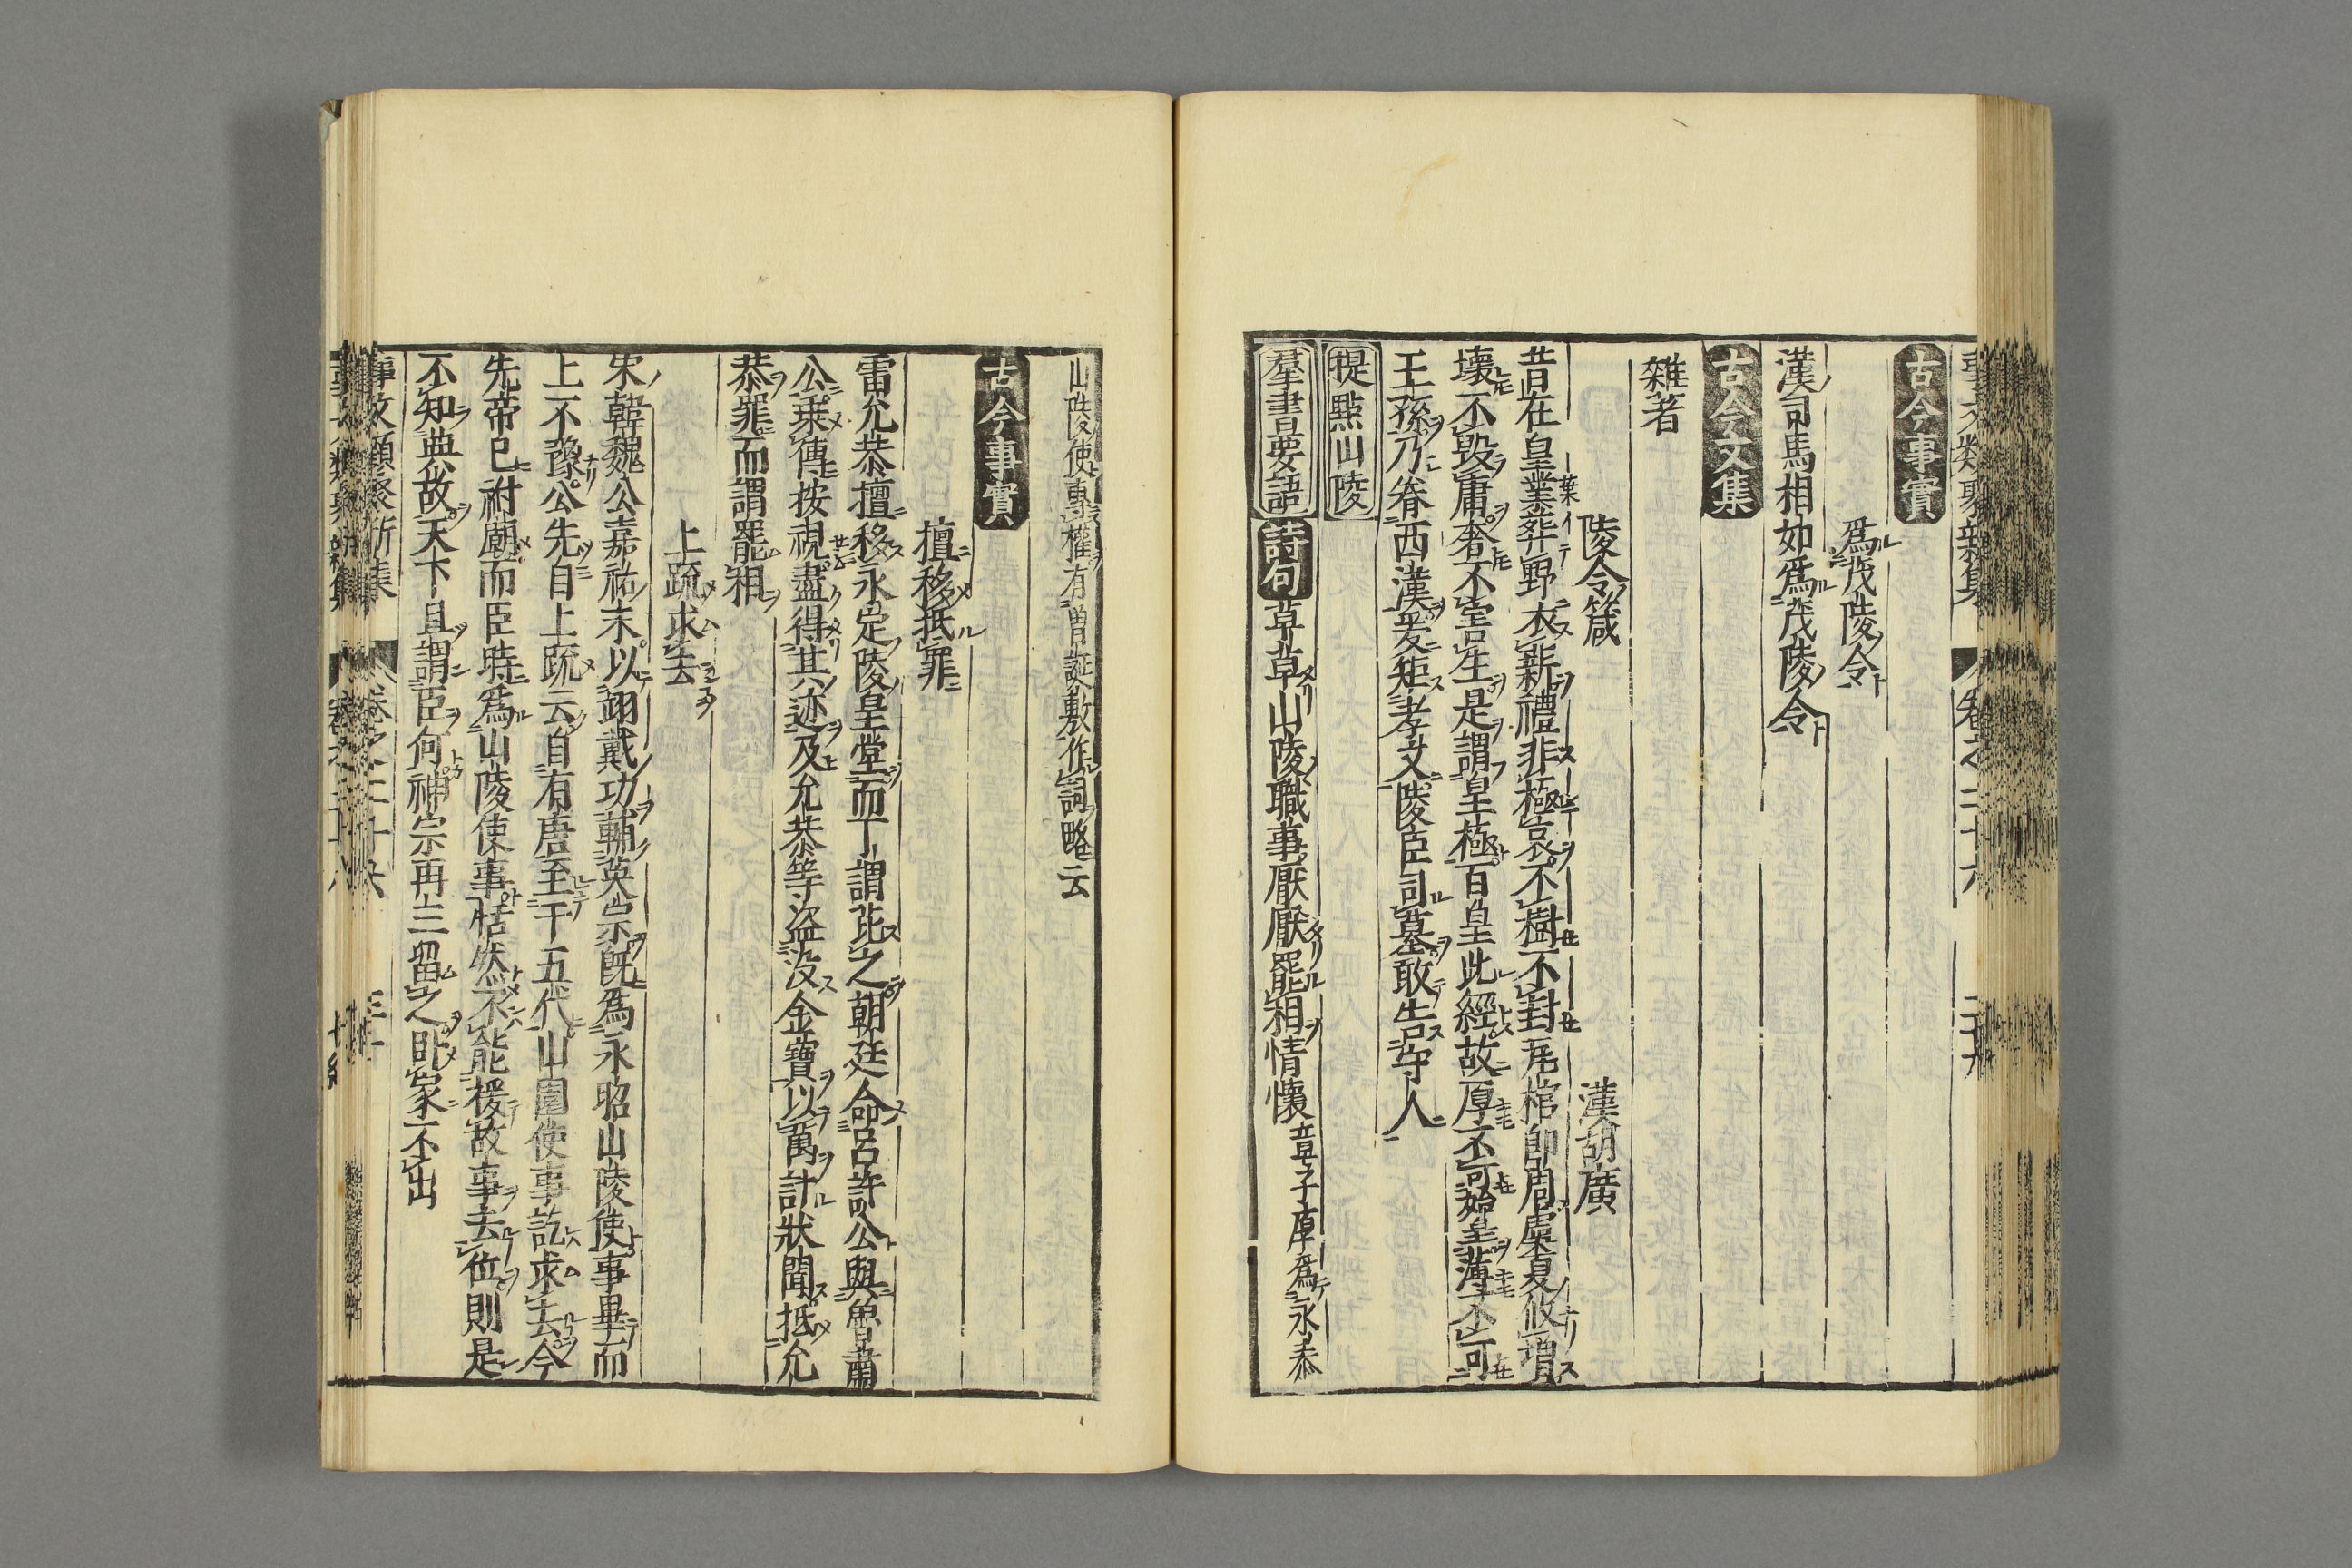 事文類聚新集 卷之三十六
古今事實
爲茂陵令
漢司馬相如爲茂陵令
古今文集
雜著
陵令箴 漢胡廣
昔在皇業葬野衣薪禮非極哀不樹不封瓦棺卽周虞夏攸增
壞不毀庸奢不害生是謂皇極百皇此經故厚不可始皇薄不可
王孫乃眷西漢爰矩孝文陵臣司墓敢告守人
提點山陵
羣書要語 詩句 草草山陵職事厭厭罷相情懷 章子厚爲永泰
山陵使專權有曽誕敷作詞略云
古今事實
擅移抵罪
雷允恭擅移永定陵皇堂而丁謂芘之朝廷命呂許公與魯肅
公乗傳按視盡得其迹及允恭等盗没金寶以萬計狀聞抵允
恭罪而謂罷相
上疏求去
宋韓魏公嘉祐末以翊戴功輔英宗旣爲永昭山陵使事畢而
上不豫公先自上疏云自有唐至于五代山園使事訖求去今
先帝已祔廟而臣時爲山陵使事恬然不能援故事去位則是
不知典故天下且謂臣何神宗再三留之卧家不出
事文類聚新集 卷之三十六